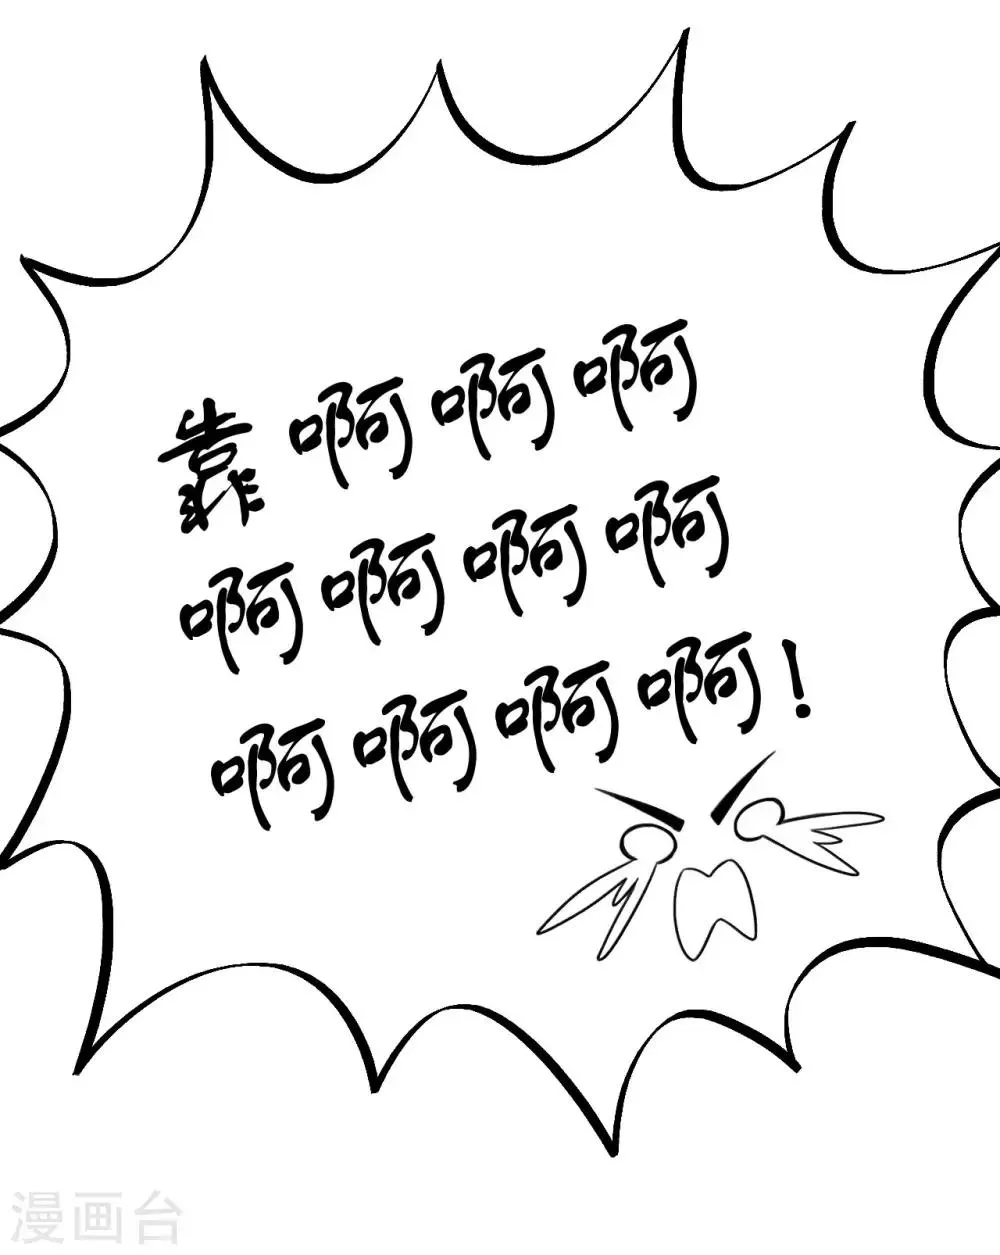 靠啊啊啊
啊啊啊啊
啊啊啊啊!
漫画台